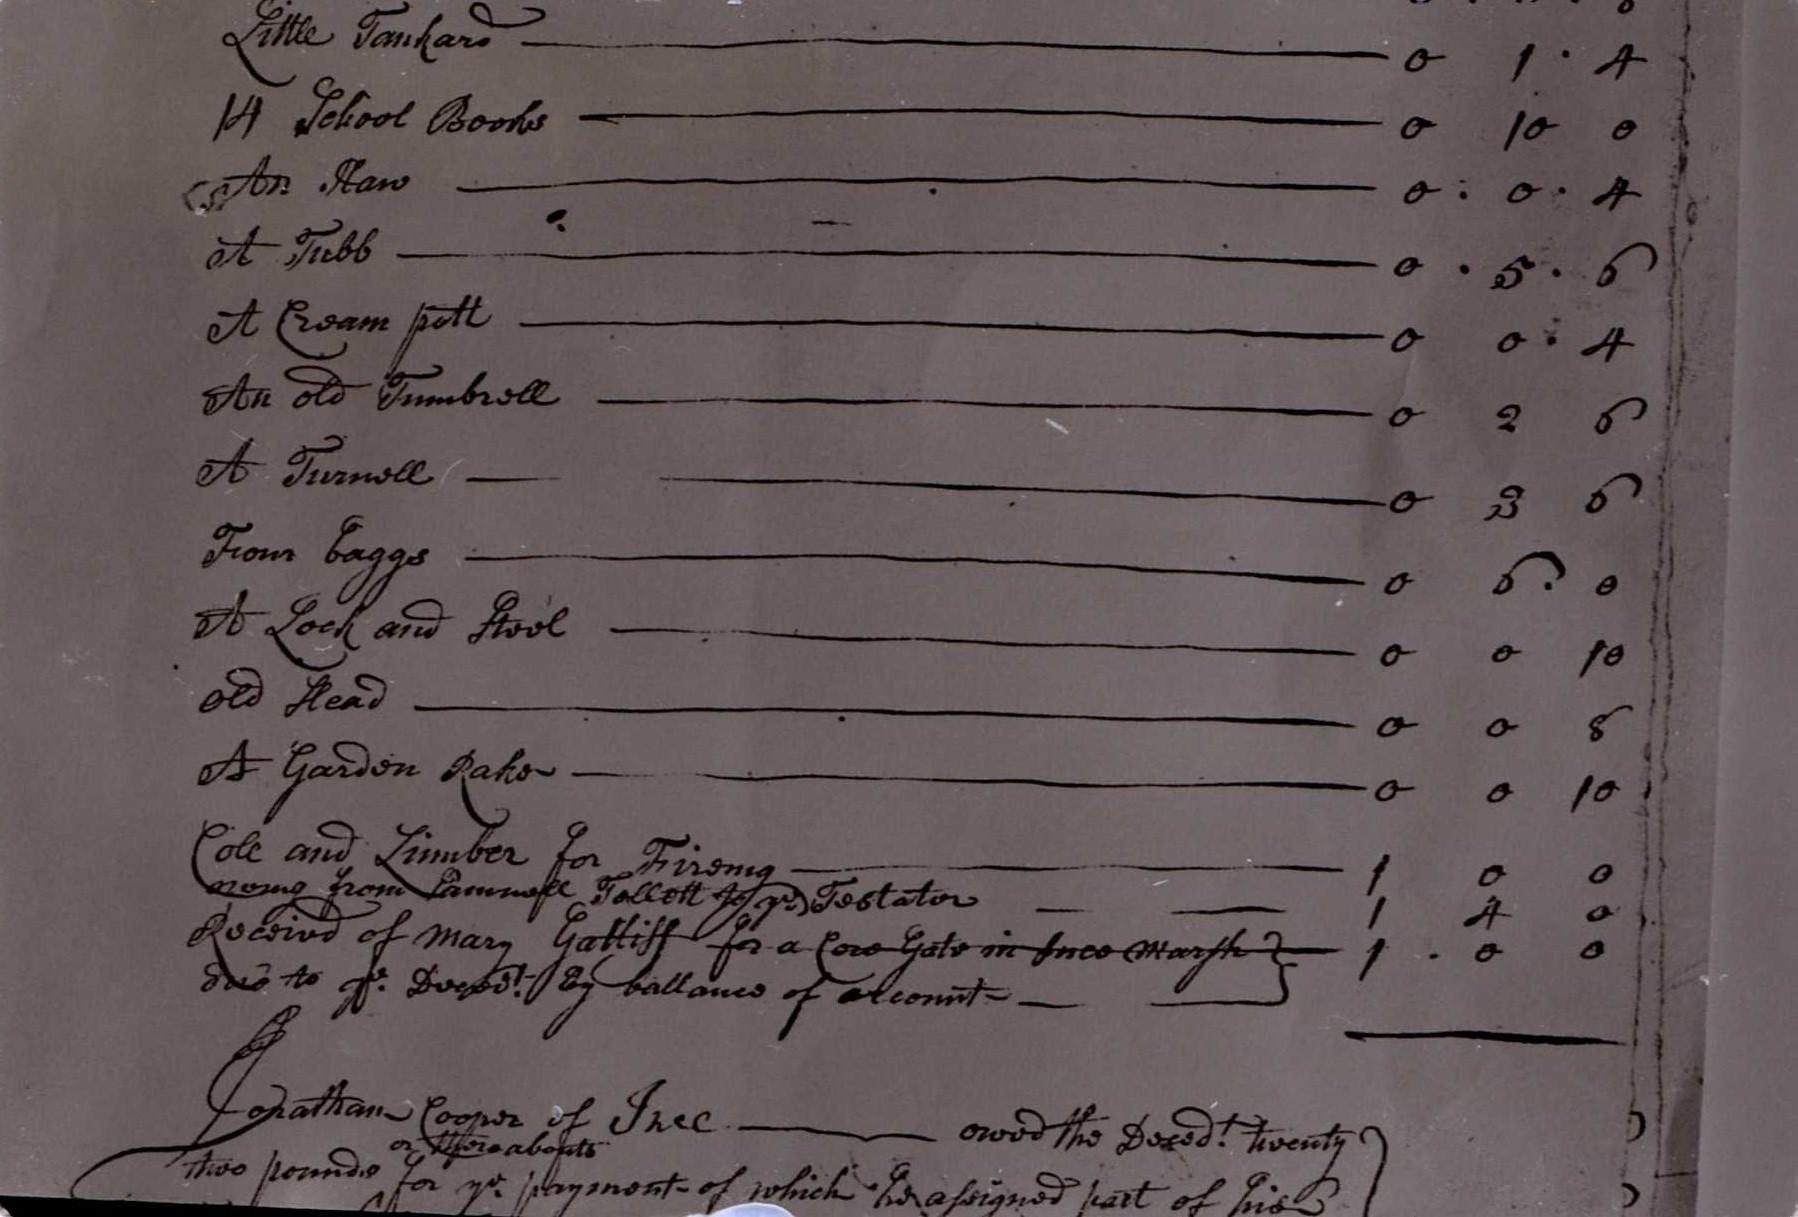 Little Tankard 0 1 · 4
14 School Books 0 10 0
An Haw 0 : 0 · 4
A Tubb 0 · 5 · 6
A Cream pott 0 0 · 4
An old Tumbrell 0 2 6
A Turnell 0 3 6
Four baggs 0 6 · 0
A Lock and Stool 0 0 10
old Head 0 0 8
A Garden Rake 0 0 10
Cole and Timber for Fireing 1 0 0
from Tellett to ye Testator 1 4 0
Received of Mary Gatliff for a Cow Gate in Ince Marsh 1 · 0 0
due to ye Deced! By ballance of account
Jonathan Cooper of Ince owed the Deced! twenty
or thereabouts
two pounds for ye payment of which he assigned part of his